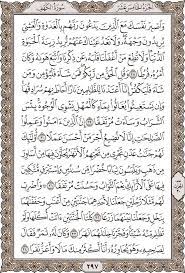 الجزء الخامس عشر
سورة الكهف
وَاصْبِرْ نَفْسَكَ مَعَ الَّذِينَ يَدْعُونَ رَبَّهُم بِالْغَدَوٰةِ وَالْعَشِيِّ
يُرِيدُونَ وَجْهَهُ وَلَا تَعْدُ عَيْنَاكَ عَنْهُمْ تُرِيدُ زِينَةَ الْحَيَوٰةِ
الدُّنْيَا وَلَا تُطِعْ مَنْ أَغْفَلْنَا قَلْبَهُ عَن ذِكْرِنَا وَاتَّبَعَ هَوَىٰهُ
وَكَانَ أَمْرُهُ فُرُطًا ٢٨ وَقُلِ الْحَقُّ مِن رَّبِّكُمْ فَمَن شَاءَ فَلْيُؤْمِن
وَمَن شَاءَ فَلْيَكْفُرْ إِنَّا أَعْتَدْنَا لِلظَّٰلِمِينَ نَارًا أَحَاطَ بِهِمْ
سُرَادِقُهَا وَإِن يَسْتَغِيثُوا يُغَاثُوا بِمَاءٍ كَالْمُهْلِ يَشْوِي الْوُجُوهَ
بِئْسَ الشَّرَابُ وَسَاءَتْ مُرْتَفَقًا ٢٩ إِنَّ الَّذِينَ ءَامَنُوا وَعَمِلُوا
الصَّٰلِحَٰتِ إِنَّا لَا نُضِيعُ أَجْرَ مَنْ أَحْسَنَ عَمَلًا ٣٠ أُولَٰئِكَ
لَهُمْ جَنَّٰتُ عَدْنٍ تَجْرِي مِن تَحْتِهِمُ الْأَنْهَٰرُ يُحَلَّوْنَ فِيهَا مِنْ
أَسَاوِرَ مِن ذَهَبٍ وَيَلْبَسُونَ ثِيَابًا خُضْرًا مِّن سُندُسٍ وَإِسْتَبْرَقٍ
مُّتَّكِئِينَ فِيهَا عَلَى الْأَرَائِكِ نِعْمَ الثَّوَابُ وَحَسُنَتْ مُرْتَفَقًا ٣١ وَاضْرِبْ
لَهُم مَّثَلًا رَّجُلَيْنِ جَعَلْنَا لِأَحَدِهِمَا جَنَّتَيْنِ مِنْ أَعْنَٰبٍ
وَحَفَفْنَٰهُمَا بِنَخْلٍ وَجَعَلْنَا بَيْنَهُمَا زَرْعًا ٣٢ كِلْتَا الْجَنَّتَيْنِ ءَاتَتْ
أُكُلَهَا وَلَمْ تَظْلِم مِّنْهُ شَيْئًا وَفَجَّرْنَا خِلَٰلَهُمَا نَهَرًا ٣٣ وَكَانَ لَهُ ثَمَرٌ فَقَالَ
لِصَٰحِبِهِ وَهُوَ يُحَاوِرُهُ أَنَا أَكْثَرُ مِنكَ مَالًا وَأَعَزُّ نَفَرًا ٣٤
٢٩٧